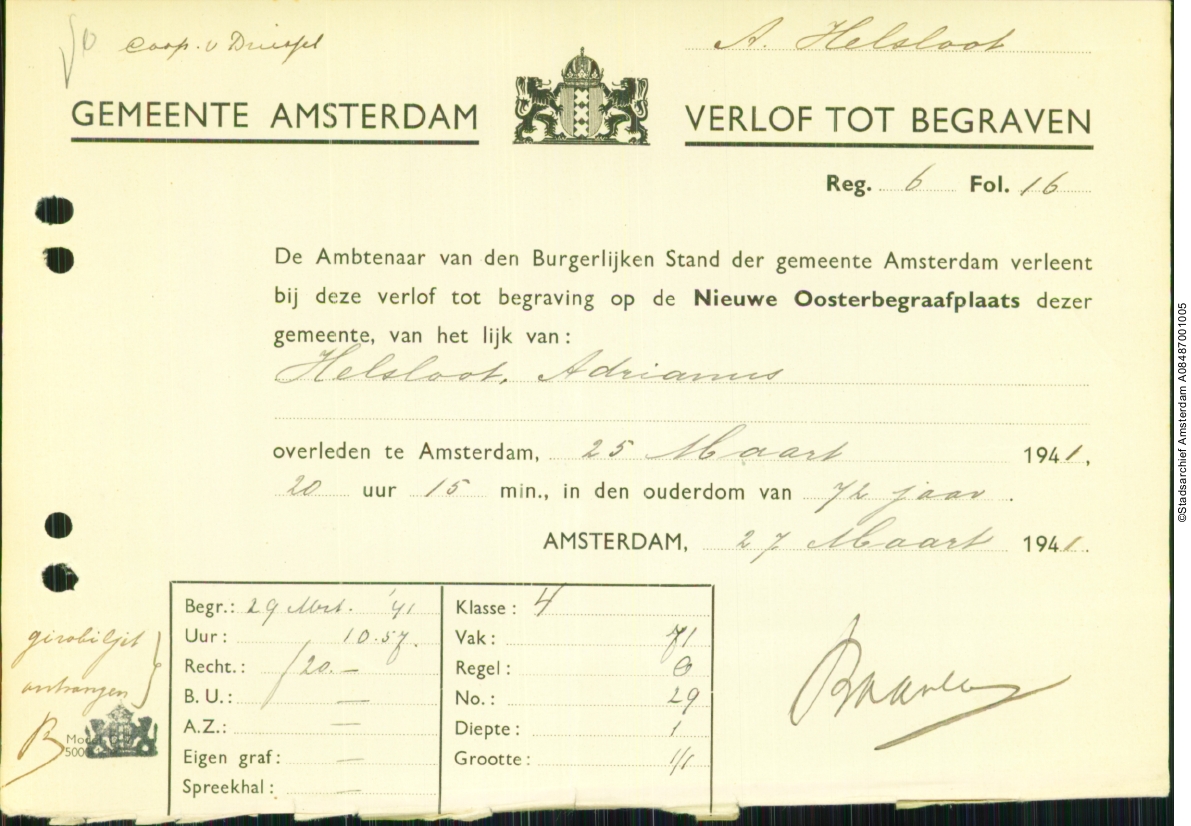 Coop. v Driesfel
A. Helsloot
GEMEENTE AMSTERDAM
VERLOF TOT BEGRAVEN
Reg. 6 Fol. 16
De Ambtenaar van den Burgerlijken Stand der gemeente Amsterdam verleent
bij deze verlof tot begraving op de Nieuwe Oosterbegraafplaats dezer
gemeente, van het lijk van:
Helsloot, Adrianus
overleden te Amsterdam, 25 Maart 1941,
20 uur 15 min., in den ouderdom van 72 jaar.
AMSTERDAM, 27 Maart 1941.
Begr.: 29 Mrt. '41
Uur: 10.57.
Recht.: ƒ20.—
B. U.: —
A.Z.: —
Eigen graf: —
Spreekhal: —
Klasse: 4
Vak: 71
Regel: 
No.: 29
Diepte: 1
Grootte: 1/1
girobiljet
ontvangen
B
©Stadsarchief Amsterdam A08487001005